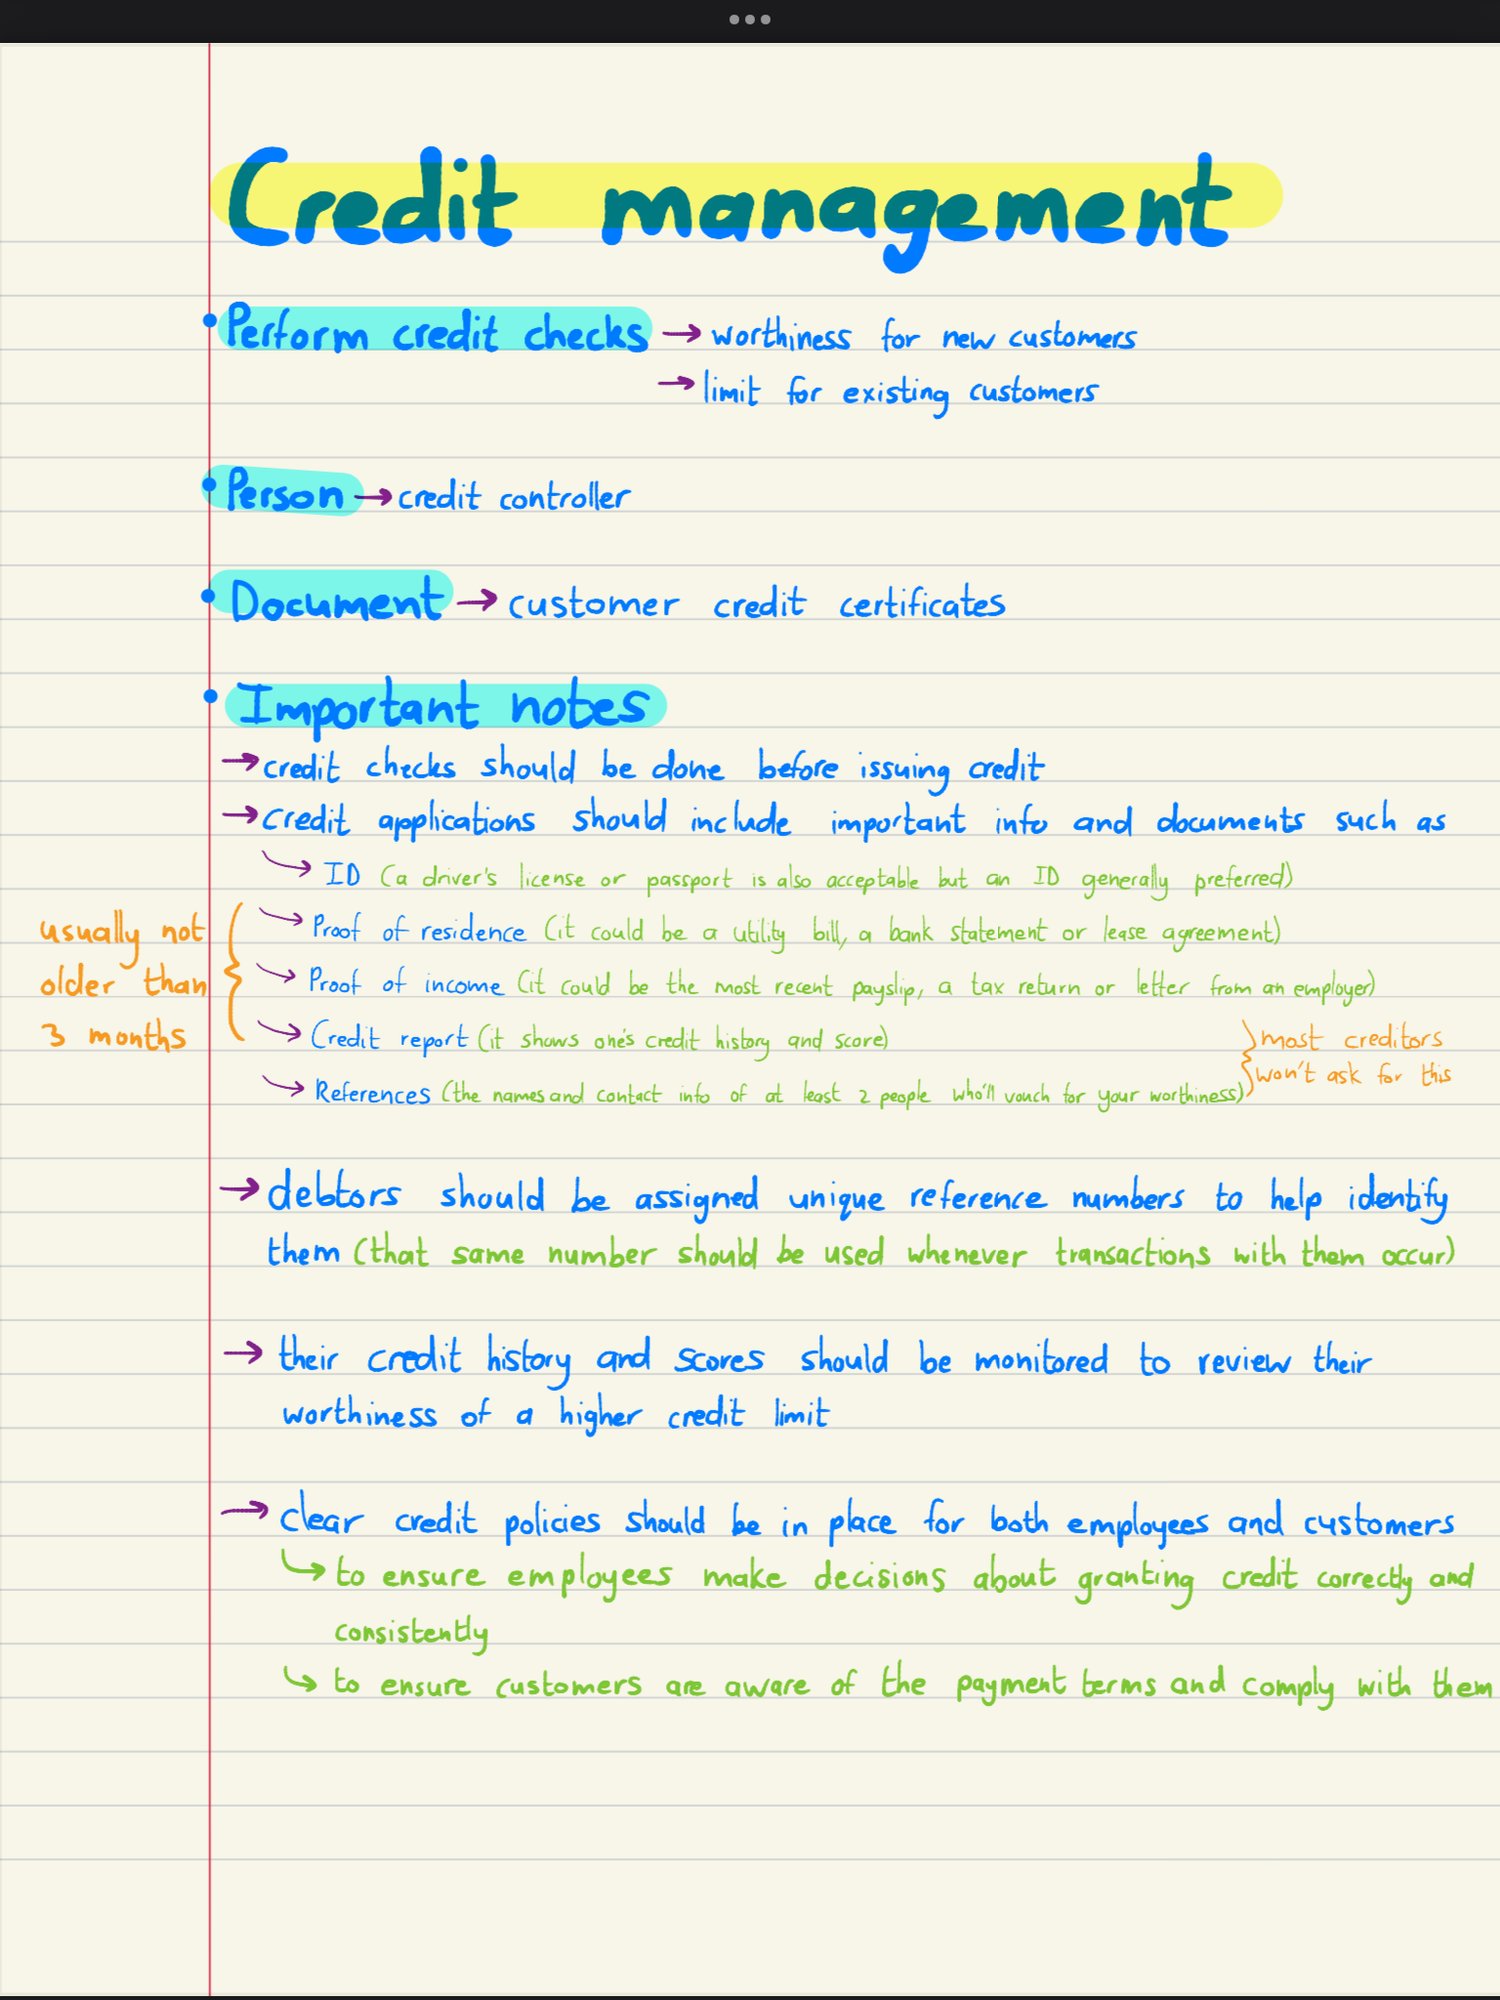 Credit management
• Perform credit checks → worthiness for new customers
→ limit for existing customers
• Person → credit controller
• Document → customer credit certificates
• Important notes
→ credit checks should be done before issuing credit
→ credit applications should include important info and documents such as
→ ID (a driver's license or passport is also acceptable but an ID generally preferred)
→ Proof of residence (it could be a utility bill, a bank statement or lease agreement)
→ Proof of income (it could be the most recent payslip, a tax return or letter from an employer)
→ Credit report (it shows one's credit history and score)
→ References (the names and contact info of at least 2 people who'll vouch for your worthiness)
usually not
older than
3 months
most creditors
won't ask for this
→ debtors should be assigned unique reference numbers to help identify
them (that same number should be used whenever transactions with them occur)
→ their credit history and scores should be monitored to review their
worthiness of a higher credit limit
→ clear credit policies should be in place for both employees and customers
↳ to ensure employees make decisions about granting credit correctly and
consistently
↳ to ensure customers are aware of the payment terms and comply with them